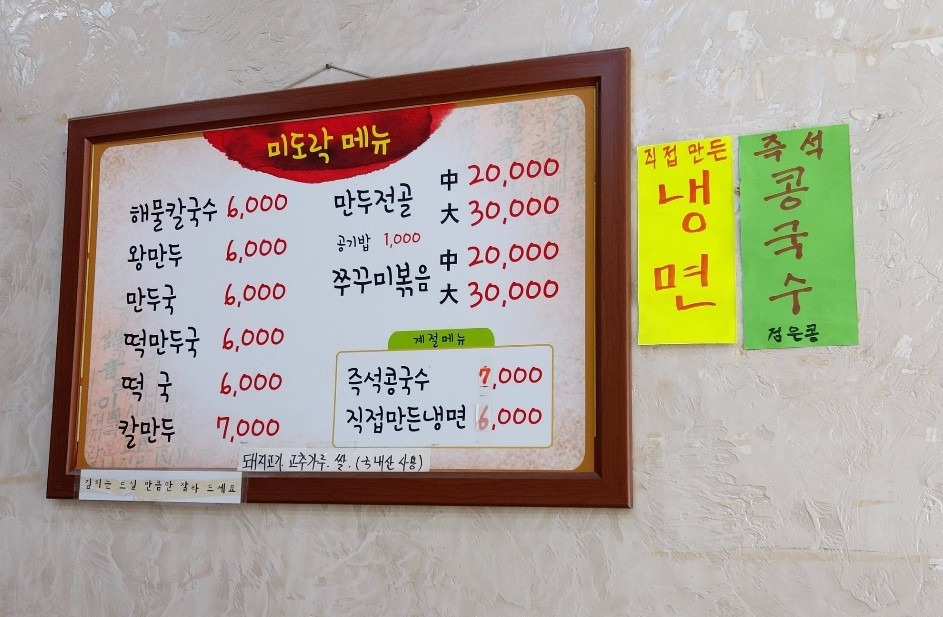 미도락 메뉴
해물칼국수 6,000
왕만두 6,000
만두국 6,000
떡만두국 6,000
떡국 6,000
칼만두 7,000
만두전골 中 20,000
大 30,000
공기밥 1,000
쭈꾸미볶음 中 20,000
大 30,000
계절메뉴
즉석콩국수 7,000
직접만든냉면 6,000
돼지고기. 고추가루. 쌀. (국내산 사용)
김치는 드실 만큼만 잘라 드세요
직접 만든
냉
면
즉석
콩
국
수
검은콩